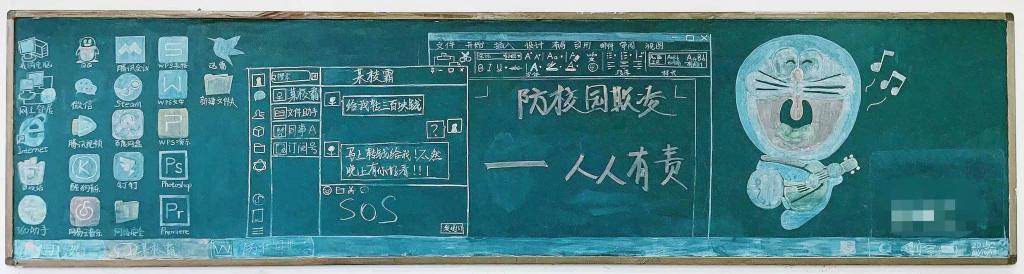 我的电脑
QQ
腾讯会议
WPS表格
迅雷
网上邻居
微信
Steam
WPS文字
新建文件夹
Internet
腾讯视频
百度网盘
WPS演示
回收站
酷狗音乐
钉钉
Ps
Photoshop
360助手
网易云音乐
网络安全
Pr
Premiere
某校霸
搜索
某校霸
文件助手
同事A
订阅号
给我转三百块钱
?
马上转钱给我!不然
晚上有你好看!!!
SOS
发送(S)
文件 开始 插入 设计 布局 引用 邮件 审阅 视图
B I U
防校园欺凌
——人人有责
某校霸
W